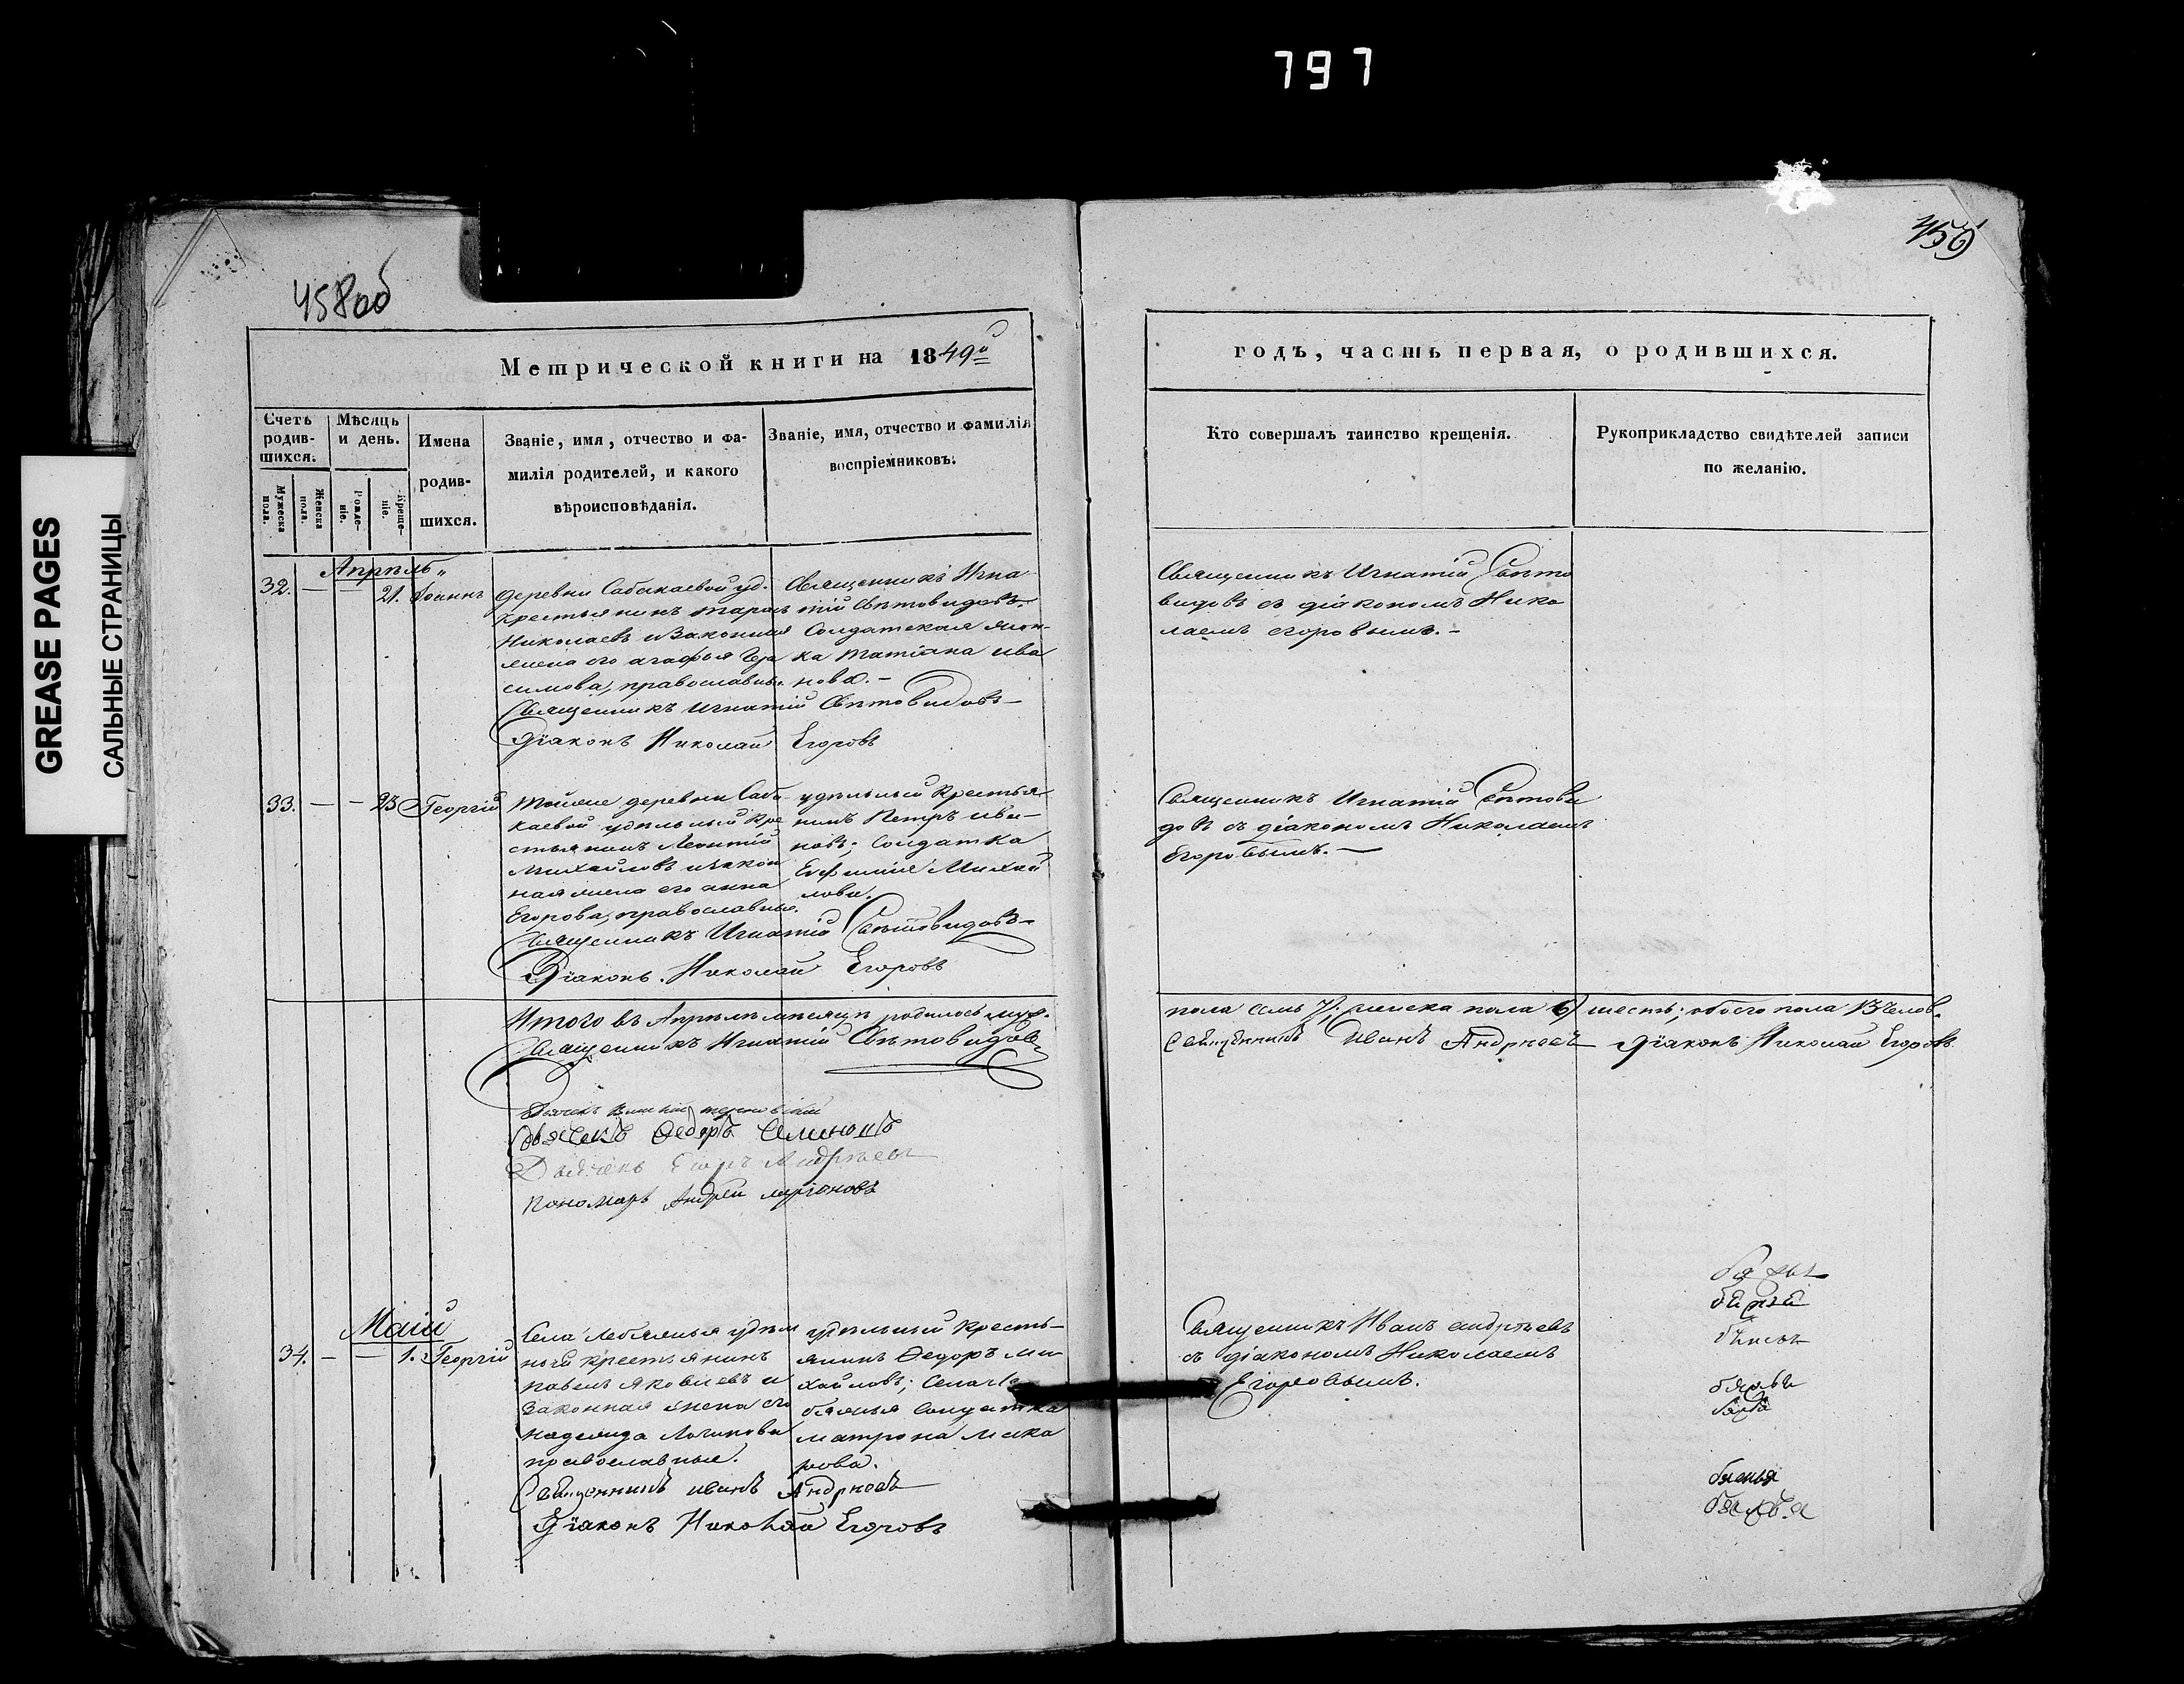 797
GREASE PAGES
САЛЬНЫЕ СТРАНИЦЫ
458об
459
Метрической книги на 1849й
годъ, часть первая, о родившихся.
Счетъ родив-шихся.
Мужеска пола.
Женска пола.
Мѣсяцъ и день.
Рожде-ніе.
Креще-ніе.
Имена
родив-
шихся.
Званіе, имя, отчество и фа-
милія родителей, и какого
вѣроисповѣданія.
Званіе, имя, отчество и фамилія
воспріемниковъ.
Кто совершалъ таинство крещенія.
Рукоприкладство свидѣтелей записи
по желанію.
Апрѣль
32. — — 21. Іоаннъ
деревни Сабакаевой уд.
крестьянинъ Тарасъ
Николаевъ и законная
жена его агафья Гера
симова, православные.
Священникъ Игна
тій Свѣтовидовъ.
Солдатская жон-
ка Татіана ива
нова. —
Священникъ Игнатій Свѣтовидовъ —
Діаконъ Николай Егоровъ
Священникъ Игнатій Свѣто
видовъ съ діакономъ Нико
лаемъ егоровымъ. —
33. — — 23 Георгій
Тойже деревни Саба
каевой удѣльный кре
стьянинъ Леонтій
Михайловъ изакон
ная жена его анна
Егорова, православные.
удѣльный крестья
нинъ Петръ ива-
новъ; Солдатка
Евфимія Михай
лова.
Священникъ Игнатій Свѣтовидовъ —
Діаконъ Николай Егоровъ
Священникъ Игнатій Свѣтови
довъ съ діакономъ Николаемъ
Егоровымъ. —
Итого въ Апрѣлѣ мѣсяцѣ родилось муж.
пола семь 7; женска пола 6 шесть; обоего пола 13 челов.
Священникъ Игнатій Свѣтовидовъ
Священникъ Иванъ Андреевъ Діаконъ Николай Егоровъ
Дьячекъ Федоръ Семеновъ
Дьячекъ Егоръ Андреевъ
пономарь Андрей ларіоновъ
Маій
34. — — 1. Георгій
Села Лебяжья удѣл
ной крестьянинъ
павелъ яковлевъ и
законная жена его
надежда Логинова
православные.
удѣльный кресть-
янинъ Федоръ ми-
хайловъ; Села Ле
бяжья Солдатка
матрона мака
рова.
Священникъ иванъ Андреевъ
Діаконъ Николай Егоровъ
Священникъ Иванъ андреевъ
съ діакономъ Николаемъ
Егоровымъ.